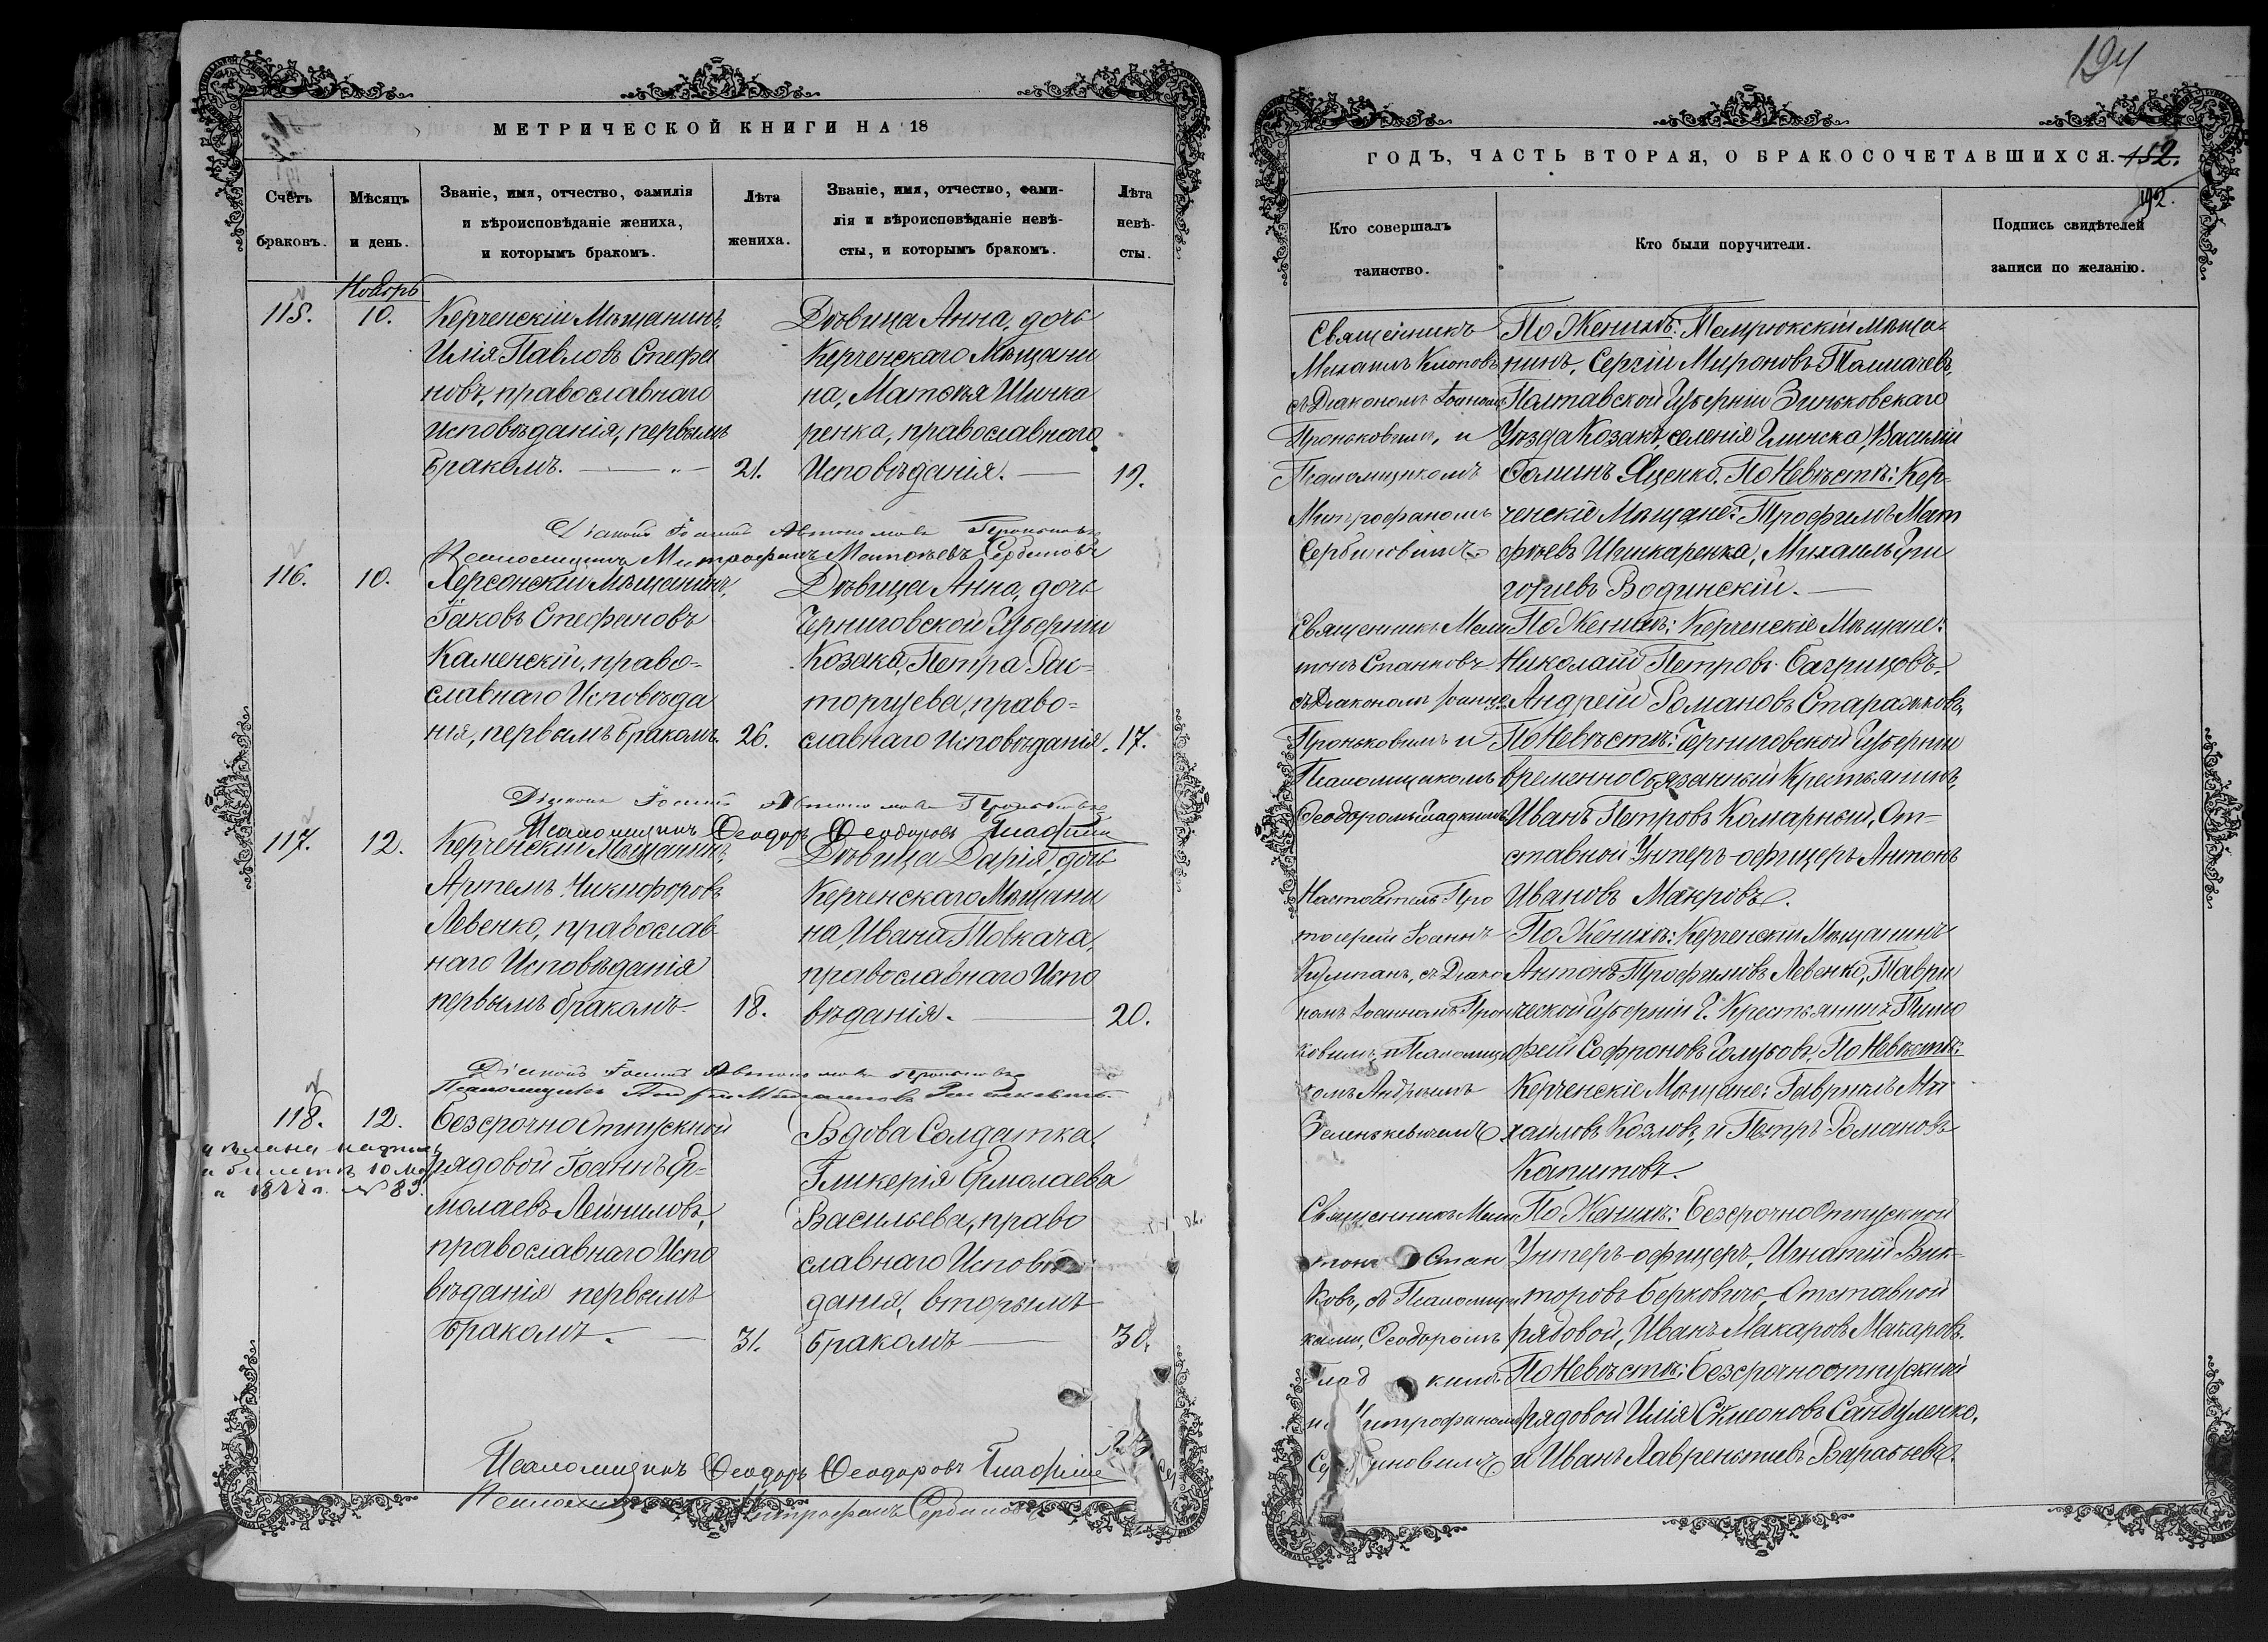 МЕТРИЧЕСКОЙ КНИГИ НА 18
Счетъ браковъ.
Мѣсяцъ и день.
Званіе, имя, отчество, фамилія
и вѣроисповѣданіе жениха,
и которымъ бракомъ.
Лѣта
жениха.
Званіе, имя, отчество, фами-
лія и вѣроисповѣданіе невѣ-
сты, и которымъ бракомъ.
Лѣта
невѣ-
сты.
Ноябрь
115. 10.
Керченскій Мѣщанинъ,
Илія Павловъ Стефа
новъ, православнаго
исповѣданія, первымъ
бракомъ. 21.
Дѣвица Анна, дочь
Керченскаго Мѣщани
на, Матѳѣя Шинка
ренка, православнаго
Исповѣданія. 19.
Діаконъ Іоаннъ Автономовъ Проньковъ
Псаломщикъ Митрофанъ Матвѣевъ Сербиновъ
116. 10.
Херсонскій Мѣщанинъ,
Іаковъ Стефановъ
Каменскій, право=
славнаго Исповѣда
нія, первымъ бракомъ. 26.
Дѣвица Анна, дочь
Черниговской Губерніи
Козака, Петра Рас=
торгуева, право=
славнаго Исповѣданія. 17.
Діаконъ Іоаннъ Автономовъ Проньковъ
Псаломщикъ Ѳеодоръ Ѳеодоровъ
117. 12.
Керченскій Мѣщанинъ,
Артемъ Никифоровъ
Левенко, православ-
наго Исповѣданія
первымъ бракомъ 18.
Дѣвица Дарія, дочь
Керченскаго Мѣщани
на, Ивана Товкача,
православнаго Испо
вѣданія. 20.
Діаконъ Іоаннъ Автономовъ Проньковъ
Псаломщикъ
118. 12.
10
83.
Безсрочно Отпускной
рядовой Іоаннъ Ер=
молаевъ
православнаго Испо
вѣданія первымъ
бракомъ. 31.
Вдова Солдатка
Гликерія Ермолаева
Васильева, право
славнаго Исповѣ
данія, вторымъ
бракомъ 30.
Псаломщикъ Ѳеодоръ Ѳеодоровъ
Псаломщикъ Митрофанъ Сербиновъ
194
ГОДЪ, ЧАСТЬ ВТОРАЯ, О БРАКОСОЧЕТАВШИХСЯ. 152.
192.
Кто совершалъ
таинство.
Кто были поручители.
Подпись свидѣтелей
записи по желанію.
Священникъ
Михаилъ Клоповъ
съ Діакономъ Іоанномъ
Проньковымъ, и
Псаломщикомъ
Митрофаномъ
Сербиновымъ.
По Женихѣ: Темрюкскій мѣща-
нинъ, Сергій Мироновъ Толмачевъ,
Полтавской Губерніи Зиньковскаго
Уѣзда Козакъ, селенія Глинска, Василій
Ѳоминъ Яценко. По Невѣстѣ: Кер-
ченскіе Мѣщане: Трофимъ Мат
ѳѣевъ Шинкаренка, Михаилъ Гри
горіевъ Водинскій.
Священникъ Мели
тонъ Станковъ
съ Діакономъ Іоанномъ
Проньковымъ и
Псаломщикомъ
Ѳеодоромъ Гладкимъ
По Женихѣ: Керченскіе Мѣщане:
Николай Петровъ Багрицовъ,
Андрей Романовъ Старажковъ,
По Невѣстѣ: Черниговской Губерніи
временно Обязанный Крестьянинъ,
Иванъ Петровъ Комарный, От-
ставной Унтеръ-офицеръ Антонъ
Ивановъ Макровъ.
Настоятель Про
тоіерей Іоаннъ
Кумпанъ, съ Діако
номъ Іоанномъ Прон
ковимъ, и Псаломщи
комъ Андреемъ
Зеленькевичемъ
По Женихѣ: Керченскій Мѣщанинъ
Антонъ Трофимовъ Левенко, Таври
ческой Губерніи Г. Крестьянинъ Тимо
фей Софроновъ Голубовъ. По Невѣстѣ:
Керченскіе Мѣщане: Гавріилъ Ми
хаиловъ Козловъ, и Петръ Романовъ
Капитовъ.
Священникъ Мели
тонъ Стан
ковъ, съ Псаломщи
ками, Ѳеодоромъ
Глад кимъ
и Митрофаномъ
Сербиновымъ
По Женихѣ: Безсрочно Отпускной
Унтеръ-офицеръ, Игнатій Вик-
торовъ Берковичъ, Отставной
рядовой, Иванъ Макаровъ Макаровъ.
По Невѣстѣ: Безсрочно отпускный
рядовой Илія Симеоновъ Сандуленко,
и Иванъ Лаврентіевъ Варабьевъ.